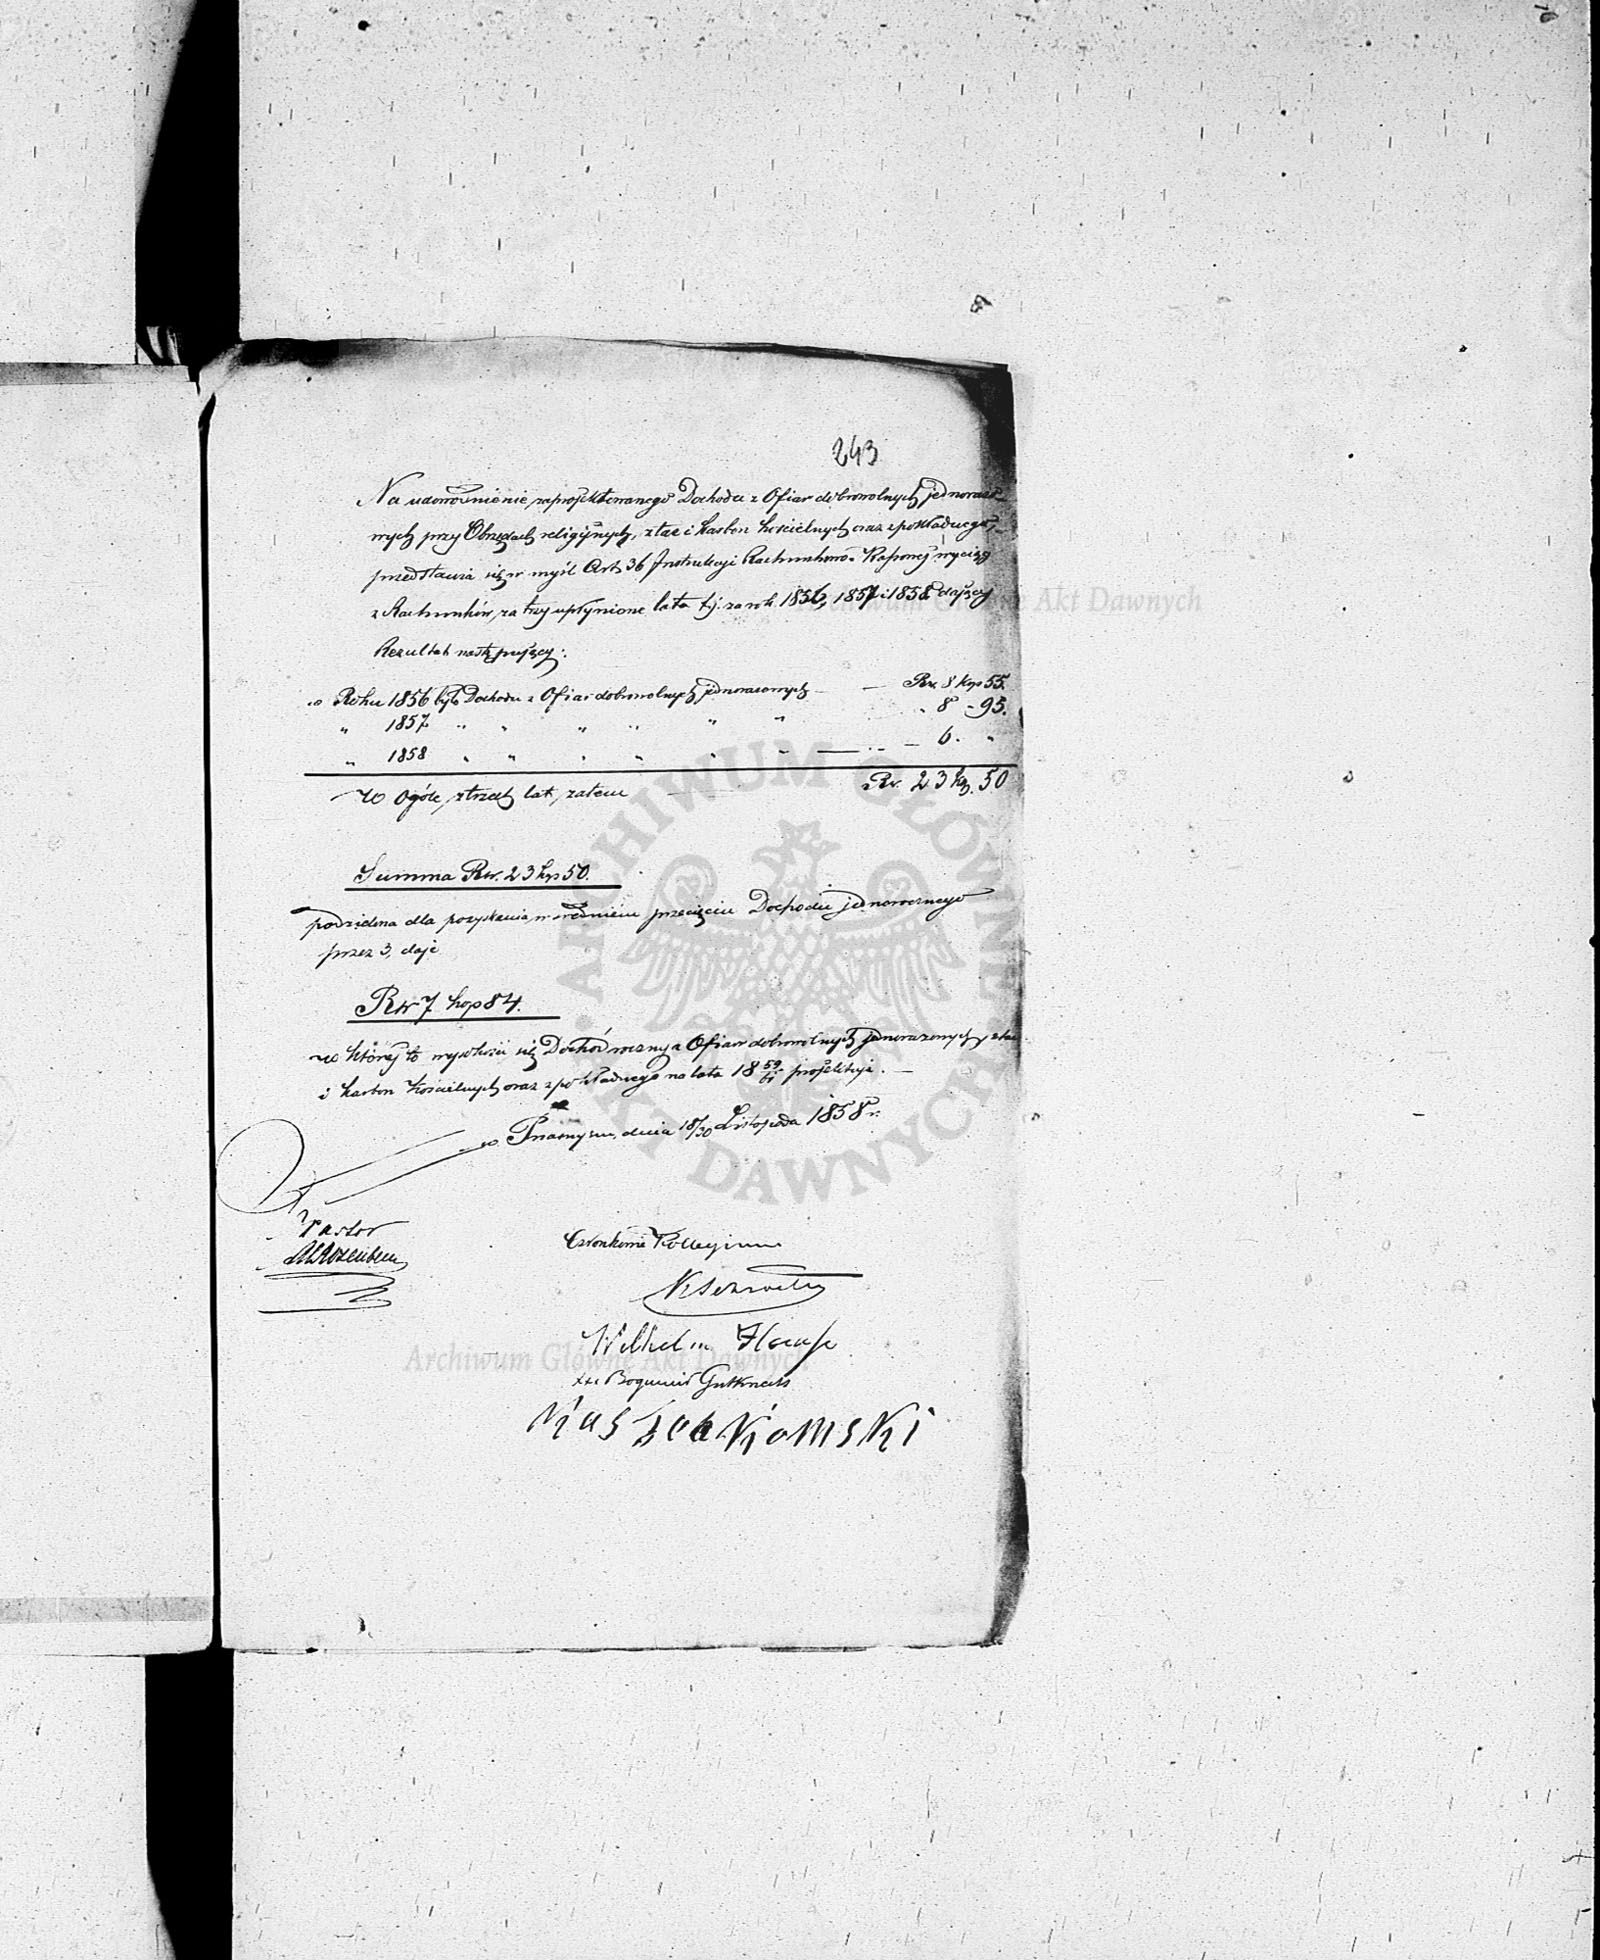 243
Na udowodnienie zaprojektowanego Dochodu z Ofiar dobrowolnych jednorazo-
wych przy Obrzędach religijnych, z tac i karbon kościelnych oraz z pokładnego,
przedstawia się w myśl Art 36 Instrukcji Rachunkowo-Kassowej wyciąg
z Rachunków, za trzy upłynione lata tj: za rok 1856, 1857 i 1858 dający
Rezultat następujący:
w Roku 1856 było Dochodu z Ofiar dobrowolnych jednorazowych — — Rsr. 8 kop 55.
„ 1857. „ „ „ „ „ „ „ 8 „ 95.
„ 1858 „ „ „ „ „ „ — „ — 6. „
W Ogóle, z trzech lat, zatem Rsr. 23 kop. 50
Summa Rsr. 23 kop 50.
podzielona dla pozyskania w średniem przecięciu Dochodu jednorocznego
przez 3, daje
Rsr 7 kop 84.
w której to wysokości się Dochód roczny z Ofiar dobrowolnych jednorazowych, z tac
i karbon kościelnych oraz z pokładnego na lata 18 59/61 projektuje. —
w Prasnyszu, dnia 18/30 Listopada 1858 r.
Pastor
Członkowie Kollegium
Wilhelm
Bogumił Gutknecht
Archiwum Główne Akt Dawnych
Archiwum Główne Akt Dawnych
ARCHIWUM GŁÓWNE AKT DAWNYCH